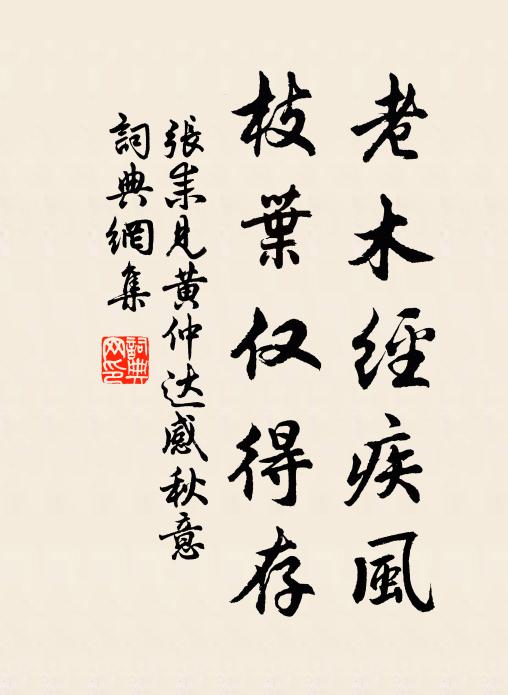 老木經疾風
枝葉仅得存
張耒見黄仲达感秋意
詞典網集
詞典
网印